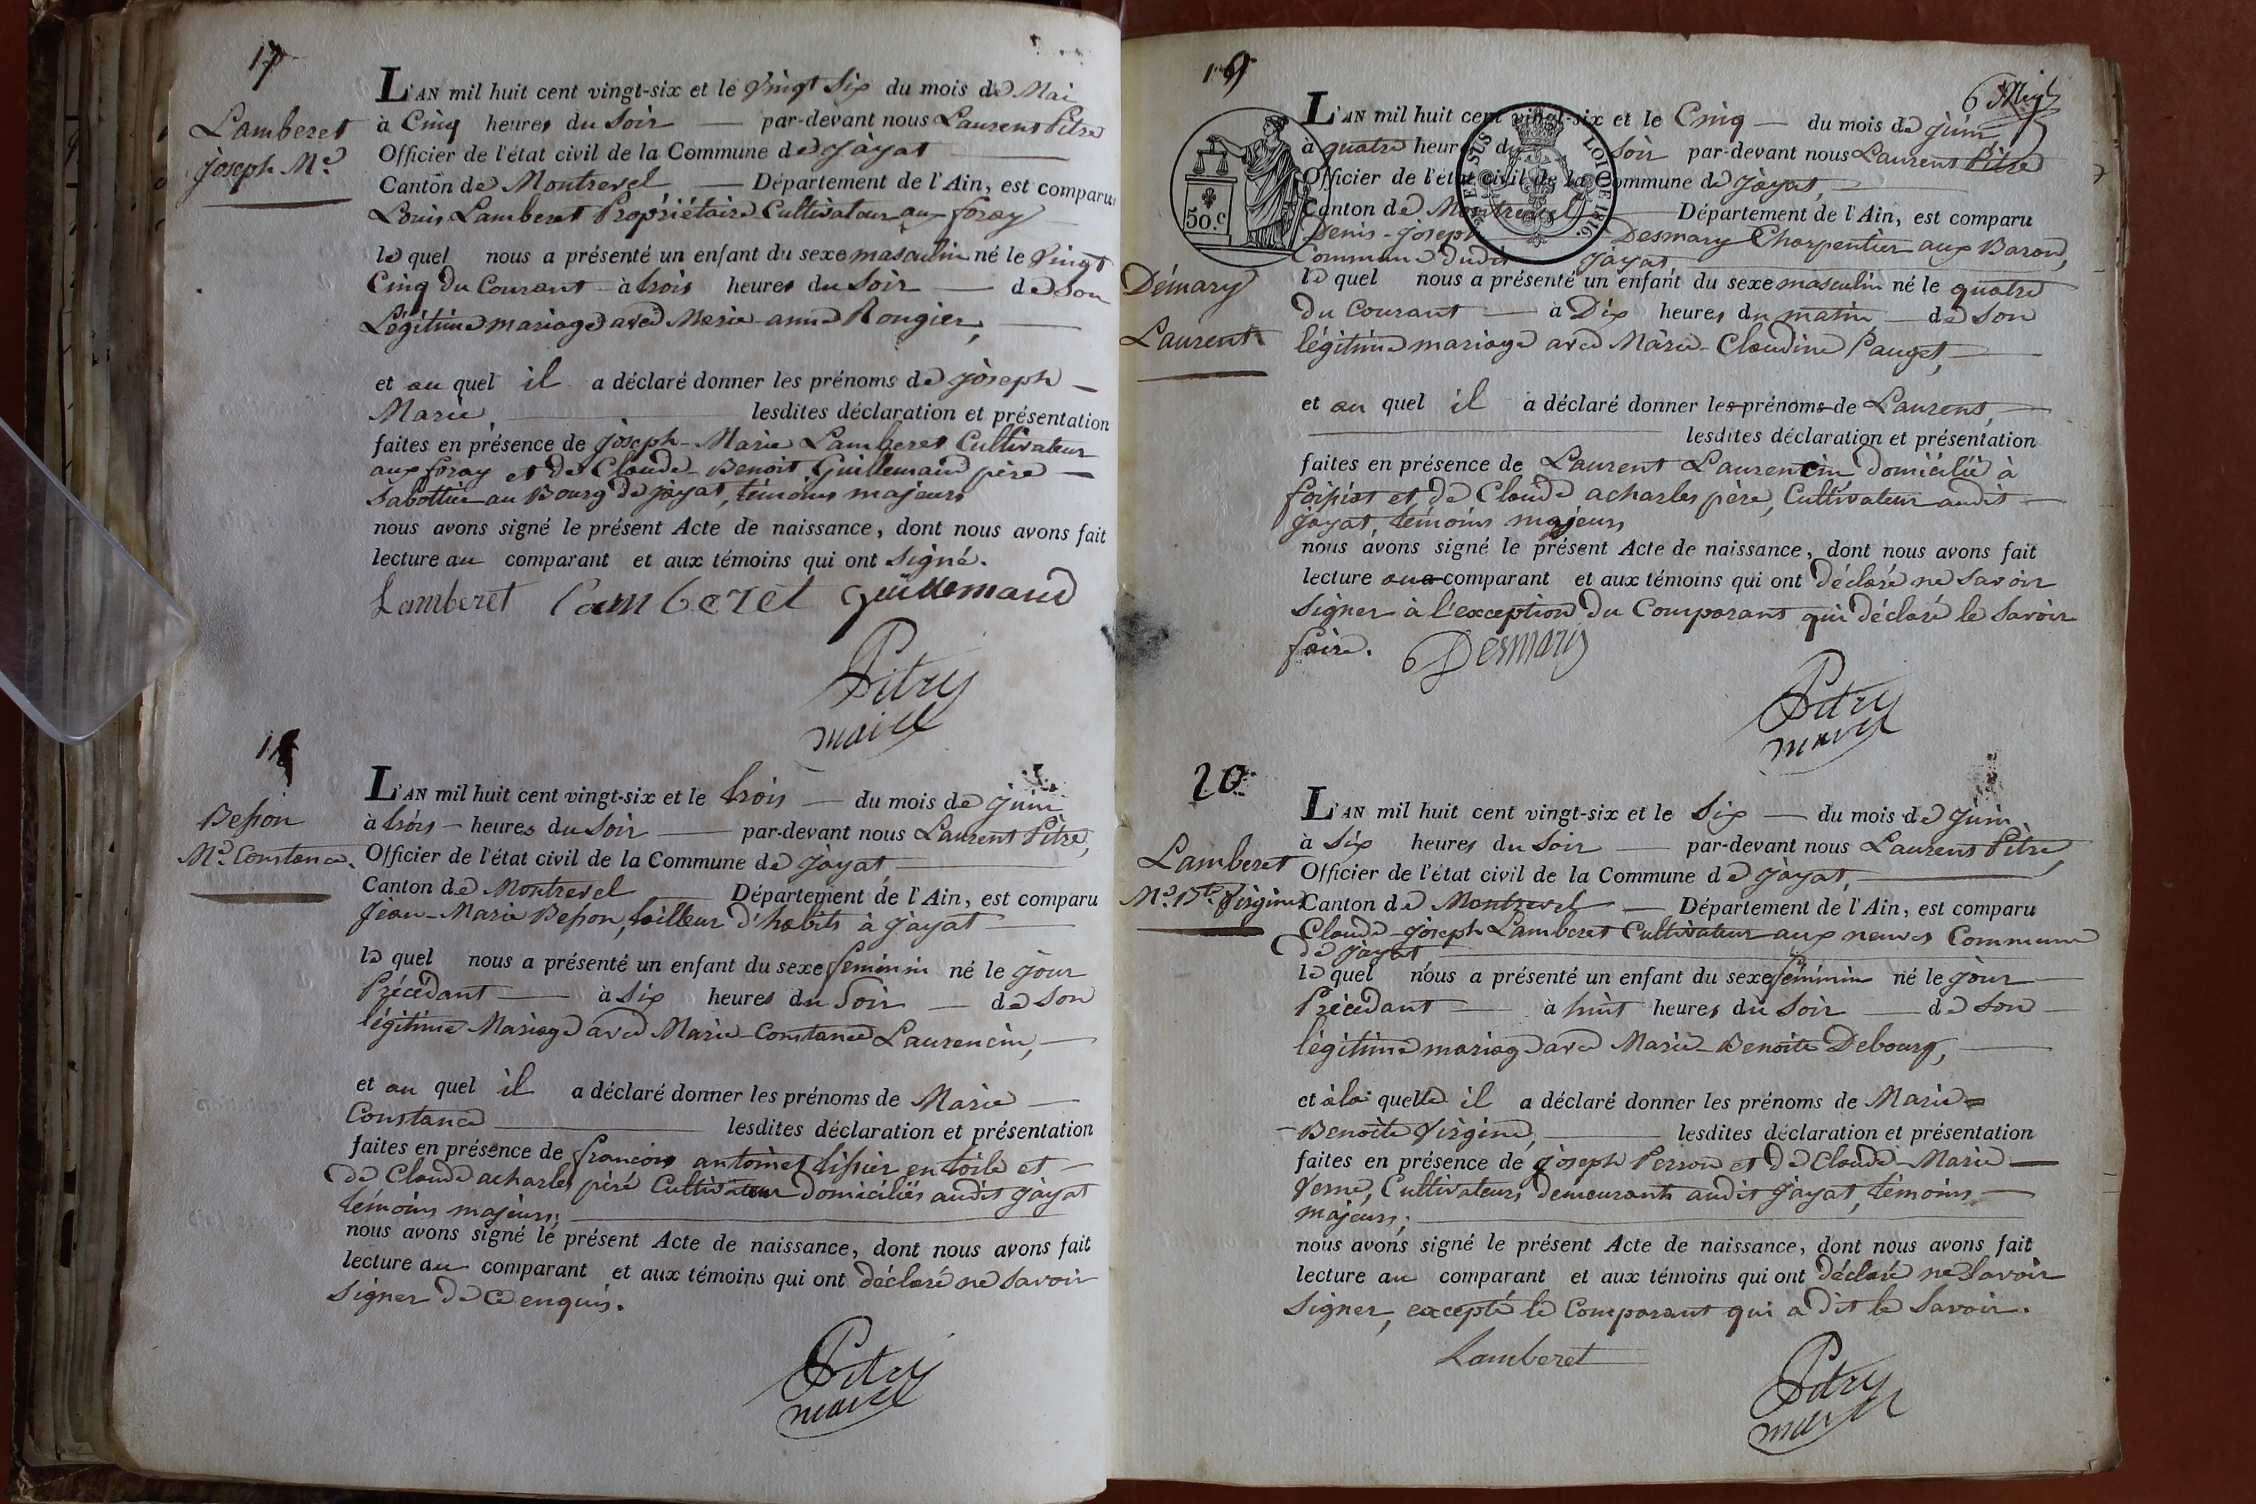 17
Lamberet
joseph Me
L'AN mil huit cent vingt-six et le vingt Six du mois de Mai
à Cinq heures du Soir par-devant nous Laurent Pitre
Officier de l'état civil de la Commune de jayat
Canton de Montrevel Département de l'Ain, est comparu
Louis Lamberet Propriétaire Cultivateur aux foray
le quel nous a présenté un enfant du sexe masculin né le vingt
Cinq du Courant à trois heures du Soir de Son
Légitime mariage avec Marie-anne Rongier,
et au quel il a déclaré donner les prénoms de joseph
Marie lesdites déclaration et présentation
faites en présence de joseph-Marie Lamberet Cultivateur
aux foray et de Claude-Benoit Guillemaud père
Sabottier au Bourg de jayat, témoins majeurs
nous avons signé le présent Acte de naissance, dont nous avons fait
lecture au comparant et aux témoins qui ont Signé.
Lamberet Lamberet Guillemaud
Pitre
maire
18
Besson
Me Constance
L'AN mil huit cent vingt-six et le trois du mois de juin
à trois heures du Soir par-devant nous Laurent Pitre,
Officier de l'état civil de la Commune de Jayat
Canton de Montrevel Département de l'Ain, est comparu
Jean-Marie Besson, tailleur d'habits à Jayat
le quel nous a présenté un enfant du sexe feminin né le jour
Précédant à Six heures du Soir de Son
légitime Mariage avec Marie-Constance Laurencin,
et au quel il a déclaré donner les prénoms de Marie
Constance lesdites déclaration et présentation
faites en présence de francois antoinet tissier en toile et
de Claude acharles père Cultivateur domiciliés audit Jayat
témoins majeurs;
nous avons signé le présent Acte de naissance, dont nous avons fait
lecture au comparant et aux témoins qui ont déclaré ne Savoir
Signer de ce enquis.
Pitre
maire
19
50.c
EL SUS
LOI DE 1816.
Démary
Laurent
L'AN mil huit cent vingt-six et le Cinq du mois de juin
à quatre heures du Soir par-devant nous Laurent Pitre
Officier de l'état civil de la Commune de Jayat,
Canton de Montrevel Département de l'Ain, est comparu
Denis-joseph Desmary Charpentier aux Baron,
Commune dudit Jayat
le quel nous a présenté un enfant du sexe masculin né le quatre
du Courant à Dix heures du matin de Son
légitime mariage avec Marie-Claudine Pauget,
et au quel il a déclaré donner les prénoms de Laurent,
lesdites déclaration et présentation
faites en présence de Laurent Laurencin domicilié à
foissiat et de Claude acharles père, Cultivateur audit
Jayat, témoins majeurs
nous avons signé le présent Acte de naissance, dont nous avons fait
lecture au comparant et aux témoins qui ont déclaré ne Savoir
Signer à l'exception du Comparant qui déclaré le Savoir
faire. Desmary
Pitre
maire
20
Lamberet
Me Bte Virgine
L'AN mil huit cent vingt-six et le Six du mois de juin
à Six heures du Soir par-devant nous Laurent Pitre,
Officier de l'état civil de la Commune de Jayat,
Canton de Montrevel Département de l'Ain, est comparu
Claude-joseph Lamberet Cultivateur aux neuves Commune
de Jayat
le quel nous a présenté un enfant du sexe féminin né le jour
Précédant à huit heures du Soir de Son
légitime mariage avec Marie-Benoite Debourg,
et à la quelle il a déclaré donner les prénoms de Marie=
Benoite Virgine, lesdites déclaration et présentation
faites en présence de joseph Perron et de Claude-Marie
Verne, Cultivateurs demeurants audit Jayat, témoins
majeurs;
nous avons signé le présent Acte de naissance, dont nous avons fait
lecture au comparant et aux témoins qui ont déclaré ne Savoir
Signer, excepté le Comparant qui a dit le Savoir.
Lamberet
Pitre
maire